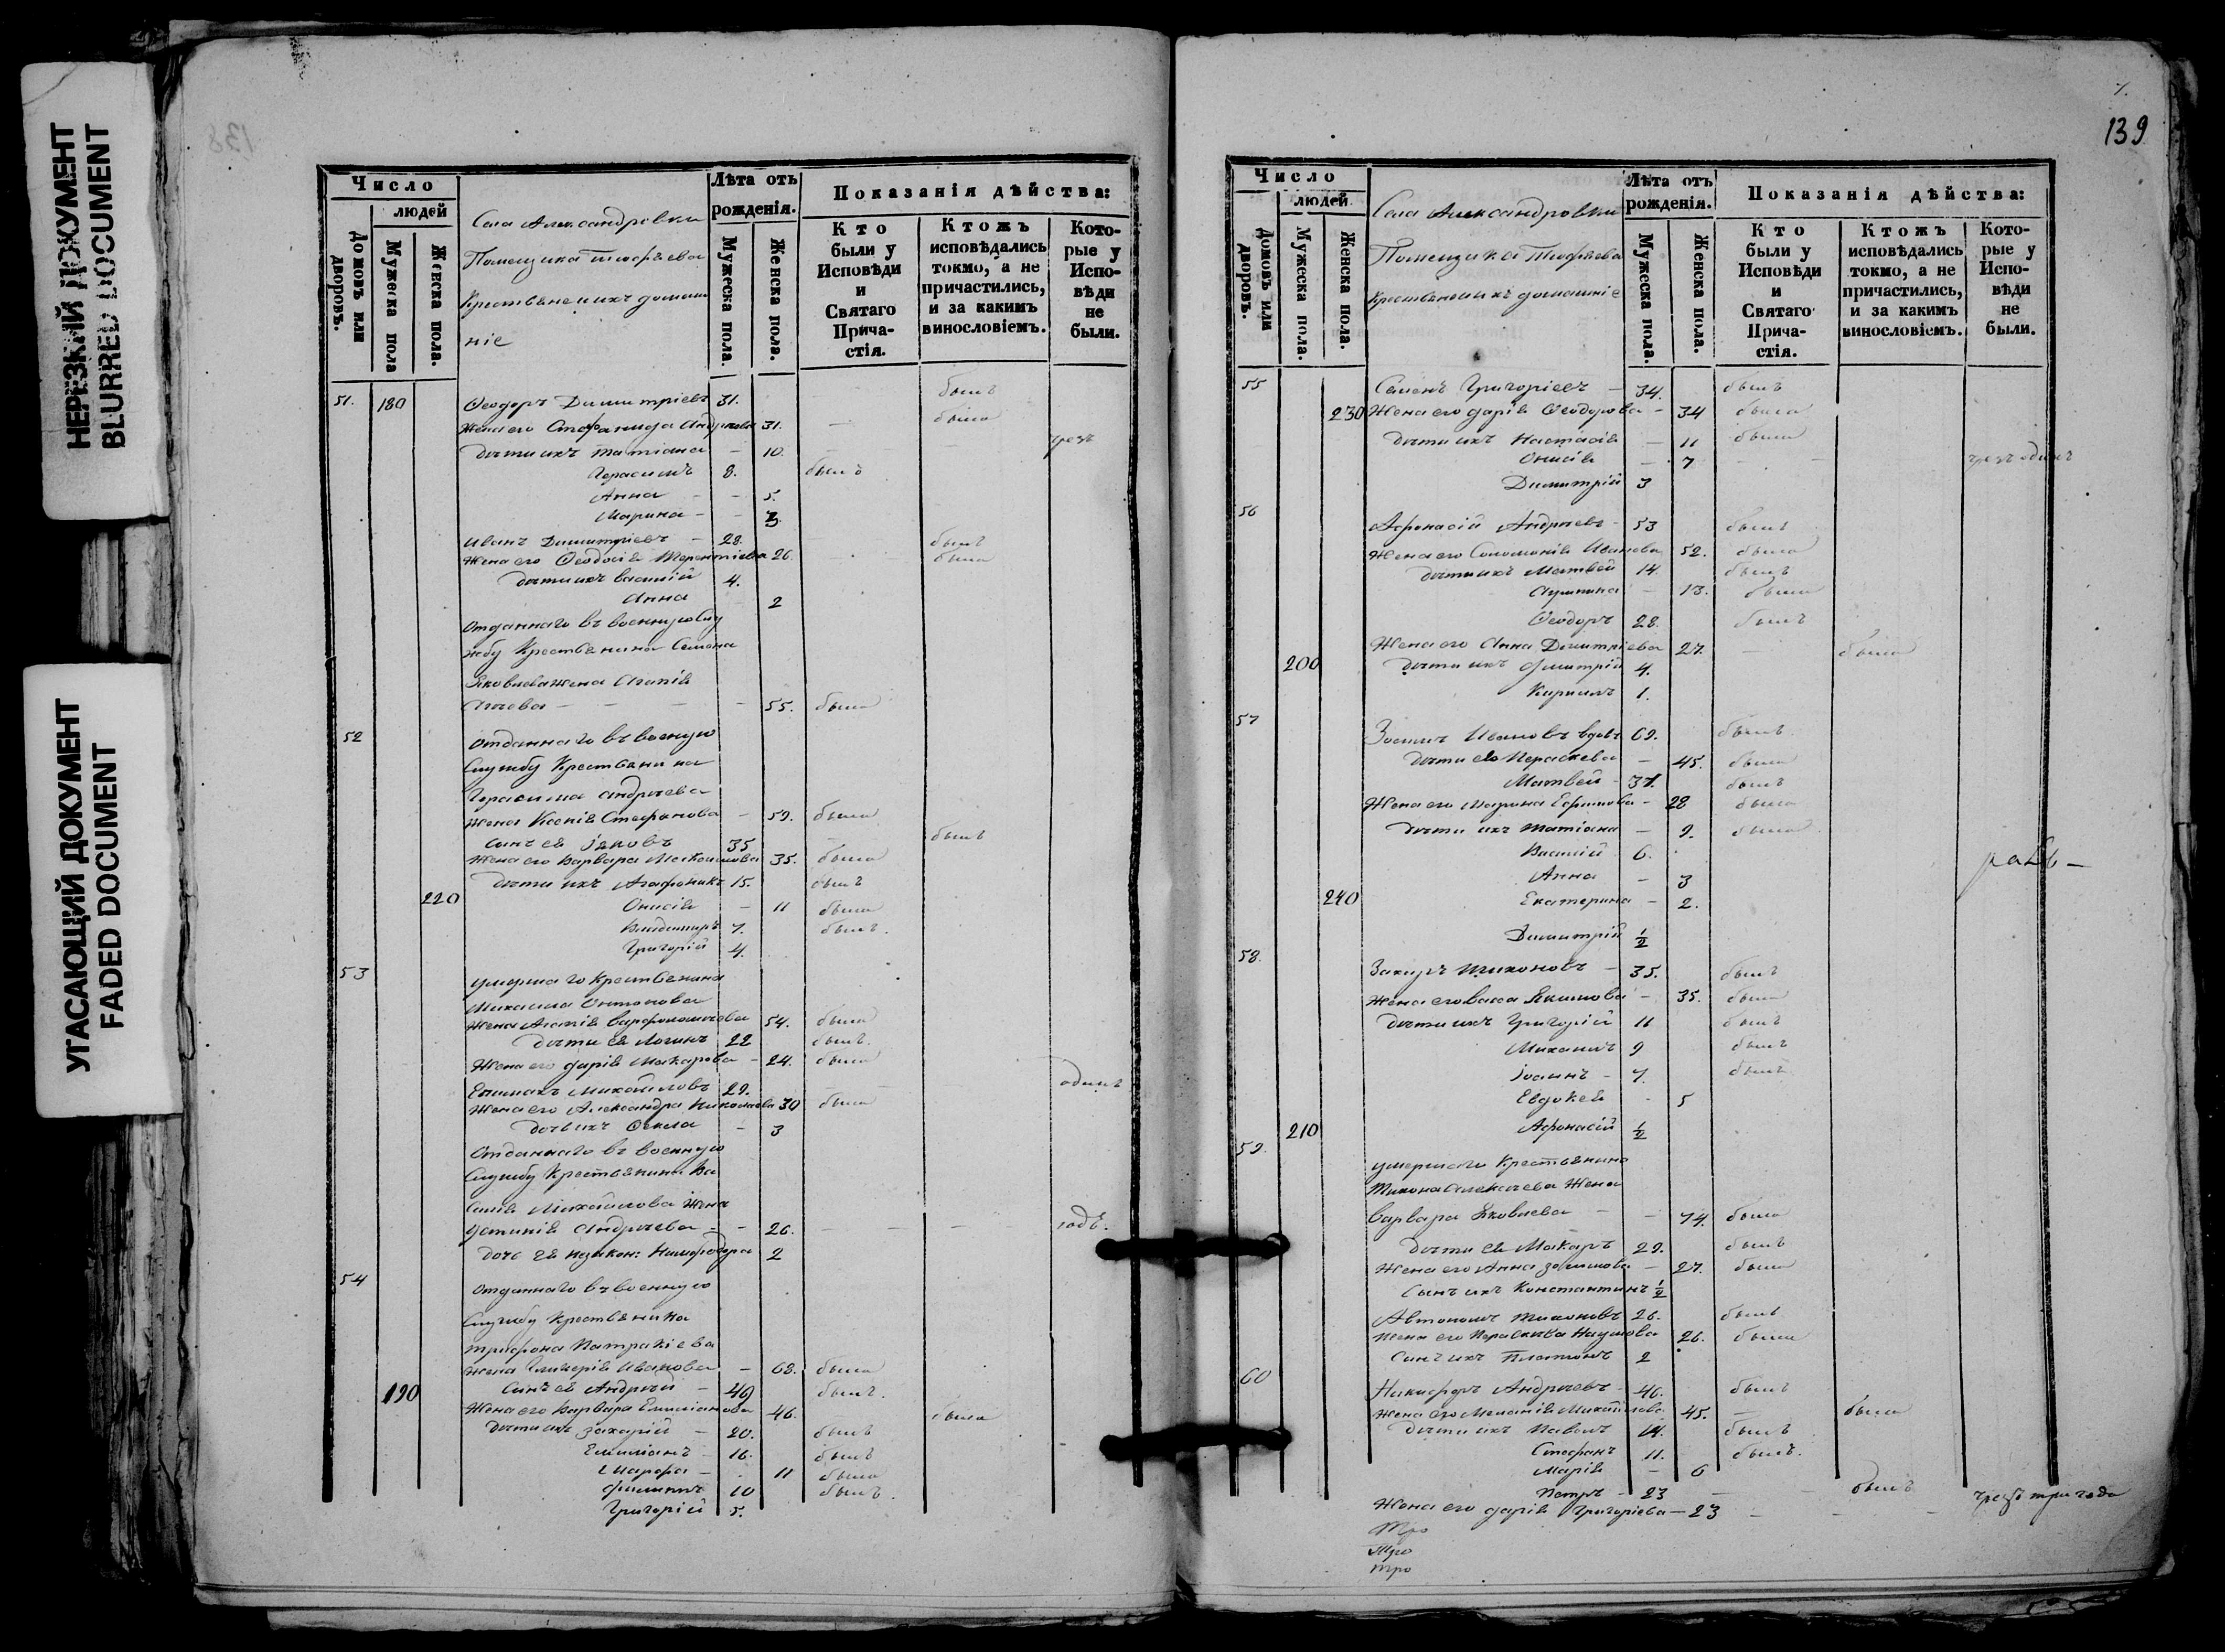 НЕРЕЗКИЙ ДОКУМЕНТ
BLURRED DOCUMENT
УГАСАЮЩИЙ ДОКУМЕНТ
FADED DOCUMENT
Число
людей
Домовъ или дворовъ.
Мужеска пола
Женска пола.
Села Александровки
Помещика
Крестьяне и ихъ домаш
ніе
Лѣта отъ рожденія.
Мужеска пола.
Женска пола.
Показанія дѣйства:
Кто были у Исповѣди и Святаго Прича-стія.
Ктожъ исповѣдались токмо, а не причастились, и за какимъ винословіемъ.
Кото-рые у Испо-вѣди не были.
51. 180 Ѳеодоръ Димитріевъ 31. былъ
Жена его Стефанида 31. была
дѣти ихъ Татіана - 10.
Герасимъ 8. былъ
Анна - - 5.
Марина - - 3.
Иванъ Димитріевъ - 28. былъ
Жена его Ѳеодосія Терентіева 26. была
дѣти ихъ Василій 4.
Анна 2
Отданнаго въ военную слу
жбу Крестьянина Семена
Яковлева жена Агапія
- - - - 55. была
52 Отданнаго въ военную
Службу Крестьянина
Герасима Андреева
Жена Ксенія Стефанова - 59. была
Сынъ ея Іаковъ 35 - былъ
Жена его Варвара 35. была
дѣти ихъ Агафоникъ 15. былъ
220 Онисія - 11 была
Владимиръ 7. былъ.
Григорій 4.
53 умершаго Крестьянина
Михаила Антонова
Жена Агапія Варфоломеева 54. была
дѣти ея Логинъ 22 былъ.
Жена его Дарія Макарова - 24. была
Епимахъ Михайловъ 29. одинъ
Жена его Александра Николаева 30 была
дочь ихъ Ѳекла - 3
Отданнаго въ военную
Службу Крестьянина Ва
силія Михайлова Жена
Устинія Андреева - - 26. годъ.
дочь ея незакон: Нимфодора 2
54 Отданнаго въ военную
Службу Крестьянина
Трифона Патракіева
жена Гликерія Иванова - 68. была
190 Сынъ ея Андрей - 49 былъ.
Жена его Варвара Емиліанова 46. была
дѣти ихъ Захарій - 20. былъ
Емиліанъ - 16. былъ
11 была
Филиппъ 10 былъ
Григорій 5.
7.
139
Число
людей
Домовъ или дворовъ.
Мужеска пола.
Женска пола.
Села Александровки
Помещика
Крестьяне и ихъ домашніе
Лѣта отъ рожденія.
Мужеска пола.
Женска пола.
Показанія дѣйства:
Кто были у Исповѣди и Святаго Прича-стія.
Ктожъ исповѣдались токмо, а не причастились, и за какимъ винословіемъ.
Кото-рые у Испо-вѣди не были.
55 Семенъ Григоріевъ - 34. былъ
230 Жена его Дарія Ѳеодорова - 34 была
дѣти ихъ Настасія - 11 была
Онисія - 7 - - чрезъ одинъ
Димитрій 3
56 Афонасій Андреевъ - 53 былъ
Жена его Соломонія Иванова 52. была
дѣти ихъ Матвей 14. былъ
Акулина - 13. была
Ѳеодоръ 28. былъ
Жена его Анна Димитріева 27. - была
200 дѣти ихъ Димитрій 4.
Кирилъ 1.
57 Зосимъ Ивановъ вдовъ 69. былъ
дѣти его Параскева - 45. была
Матвей - 37. былъ
Жена его Марина Ефимова - 28 была
дѣти ихъ Татіана - 9. была
Василій 6.
Анна - 3
240 Екатерина - 2.
Димитрій ½
58. Захаръ Тихоновъ - 35. былъ
Жена его Васа Якимова - 35. была
дѣти ихъ Григорій 11 былъ
Михаилъ 9 былъ
Іоаннъ - 7. былъ
Евдокея - 5
210 Афонасій ½
59. умершаго Крестьянина
Тихона Алексеева Жена
Варвара Яковлева - - 74. была
дѣти ея Макаръ 29. былъ
Жена его Анна - 27. была
Сынъ ихъ Константинъ ½
Автономъ Тихоновъ 26. былъ
Жена его Параскева Наумова 26. была
Сынъ ихъ Платонъ 2
60 Никифоръ Андреевъ - 46. былъ
Жена его Меланія Михайлова 45. - была
дѣти ихъ Павелъ 14. былъ
Стефанъ 11. былъ.
Марія - 6
Петръ - 23 - - былъ
Жена его Дарія Григоріева - 23 - - - чрезъ три года
Тро
Тро
тро